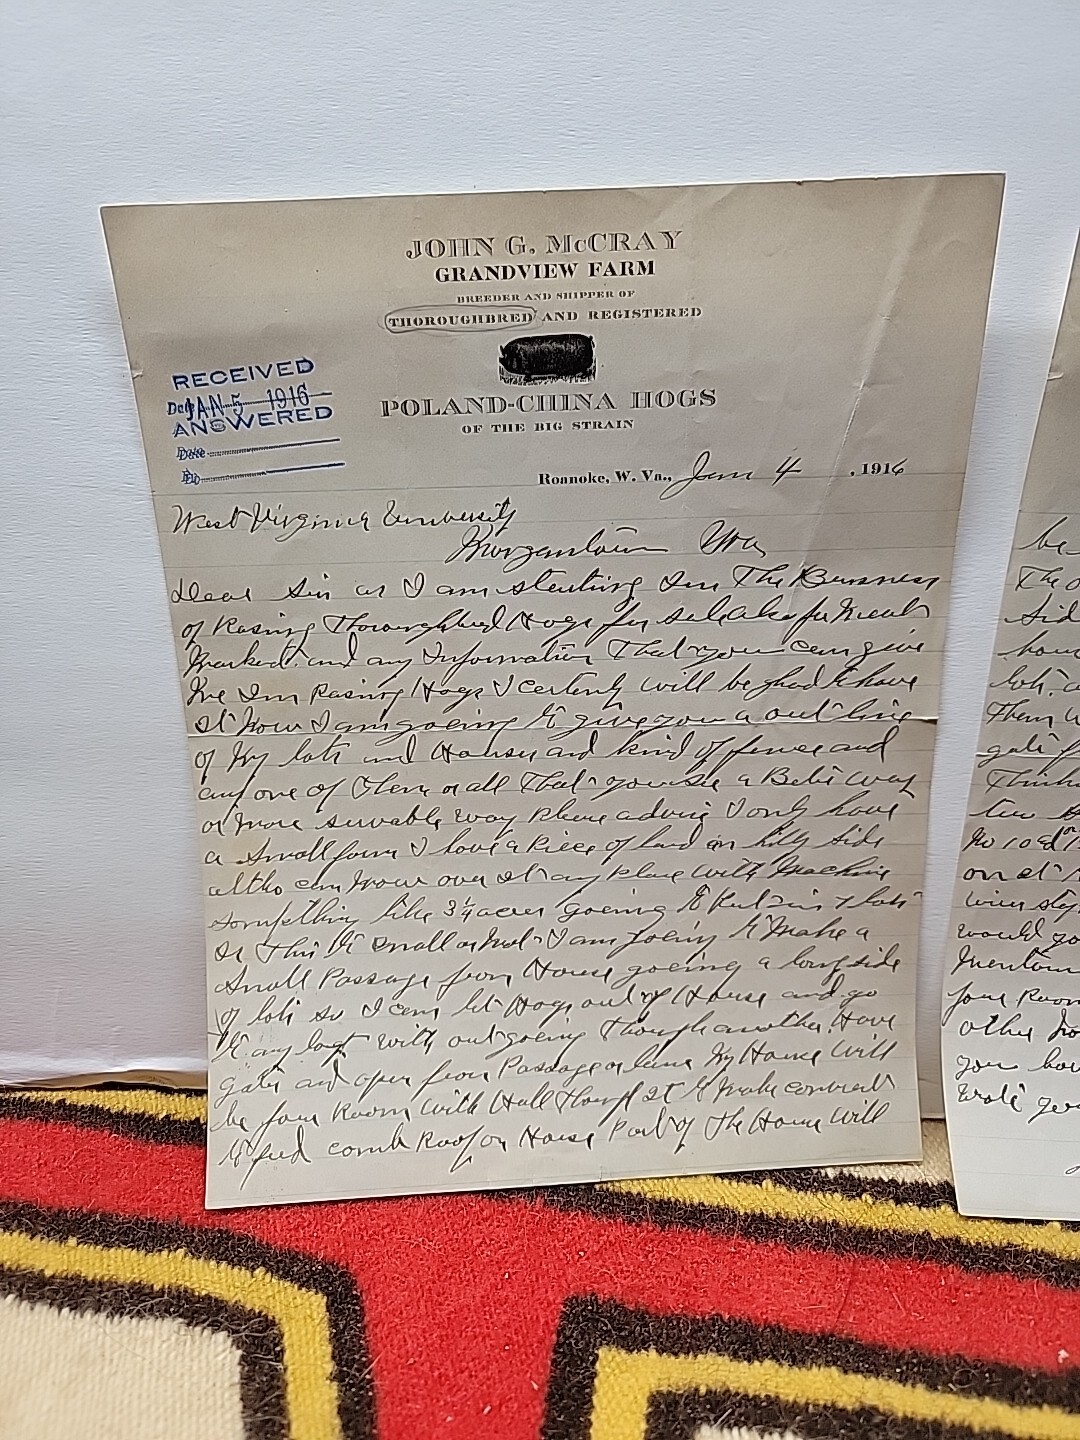 JOHN G. McCRAY
GRANDVIEW FARM
BREEDER AND SHIPPER OF
THOROUGHBRED AND REGISTERED
POLAND-CHINA HOGS
OF THE BIG STRAIN
RECEIVED
Date JAN 5 1916
ANSWERED
Date
By
Roanoke, W. Va., Jan 4, 1916
West Virginia University
Morgantown Wva
Dear Sir as I am starting In The Business
of Rasing Thoroughbred Hogs for sale also for Meat
Market and any Information That you can give
Me In Rasing Hogs I certenly will be glad to have
It Now I am goeing to give you a out line
of My lots and Houses and kind of fence and
any one of Them or all That you see a Beter way
or more suvable way Please advise I only have
a small farm I have a Piece of land on hilly side
altho can mow over It any place with Machine
something like 3 1/4 acres goeing to Put in 7 lots
Is This to small or Not I am goeing to Make a
Small Passage from House goeing a long side
of lots so I can let Hogs out of House and go
to any lot with out going Through another Have
gates and open from Passage or lane My House Will
be four Room With Hall Through It to make convenient
to feed comb Roof on House Part of The House Will
be
The o
Sid
hous
lots. a
Them w
gate f
Think
two
No 10
on it
wire stay
would yo
Mention
four Room
other No
you hav
Wrote you